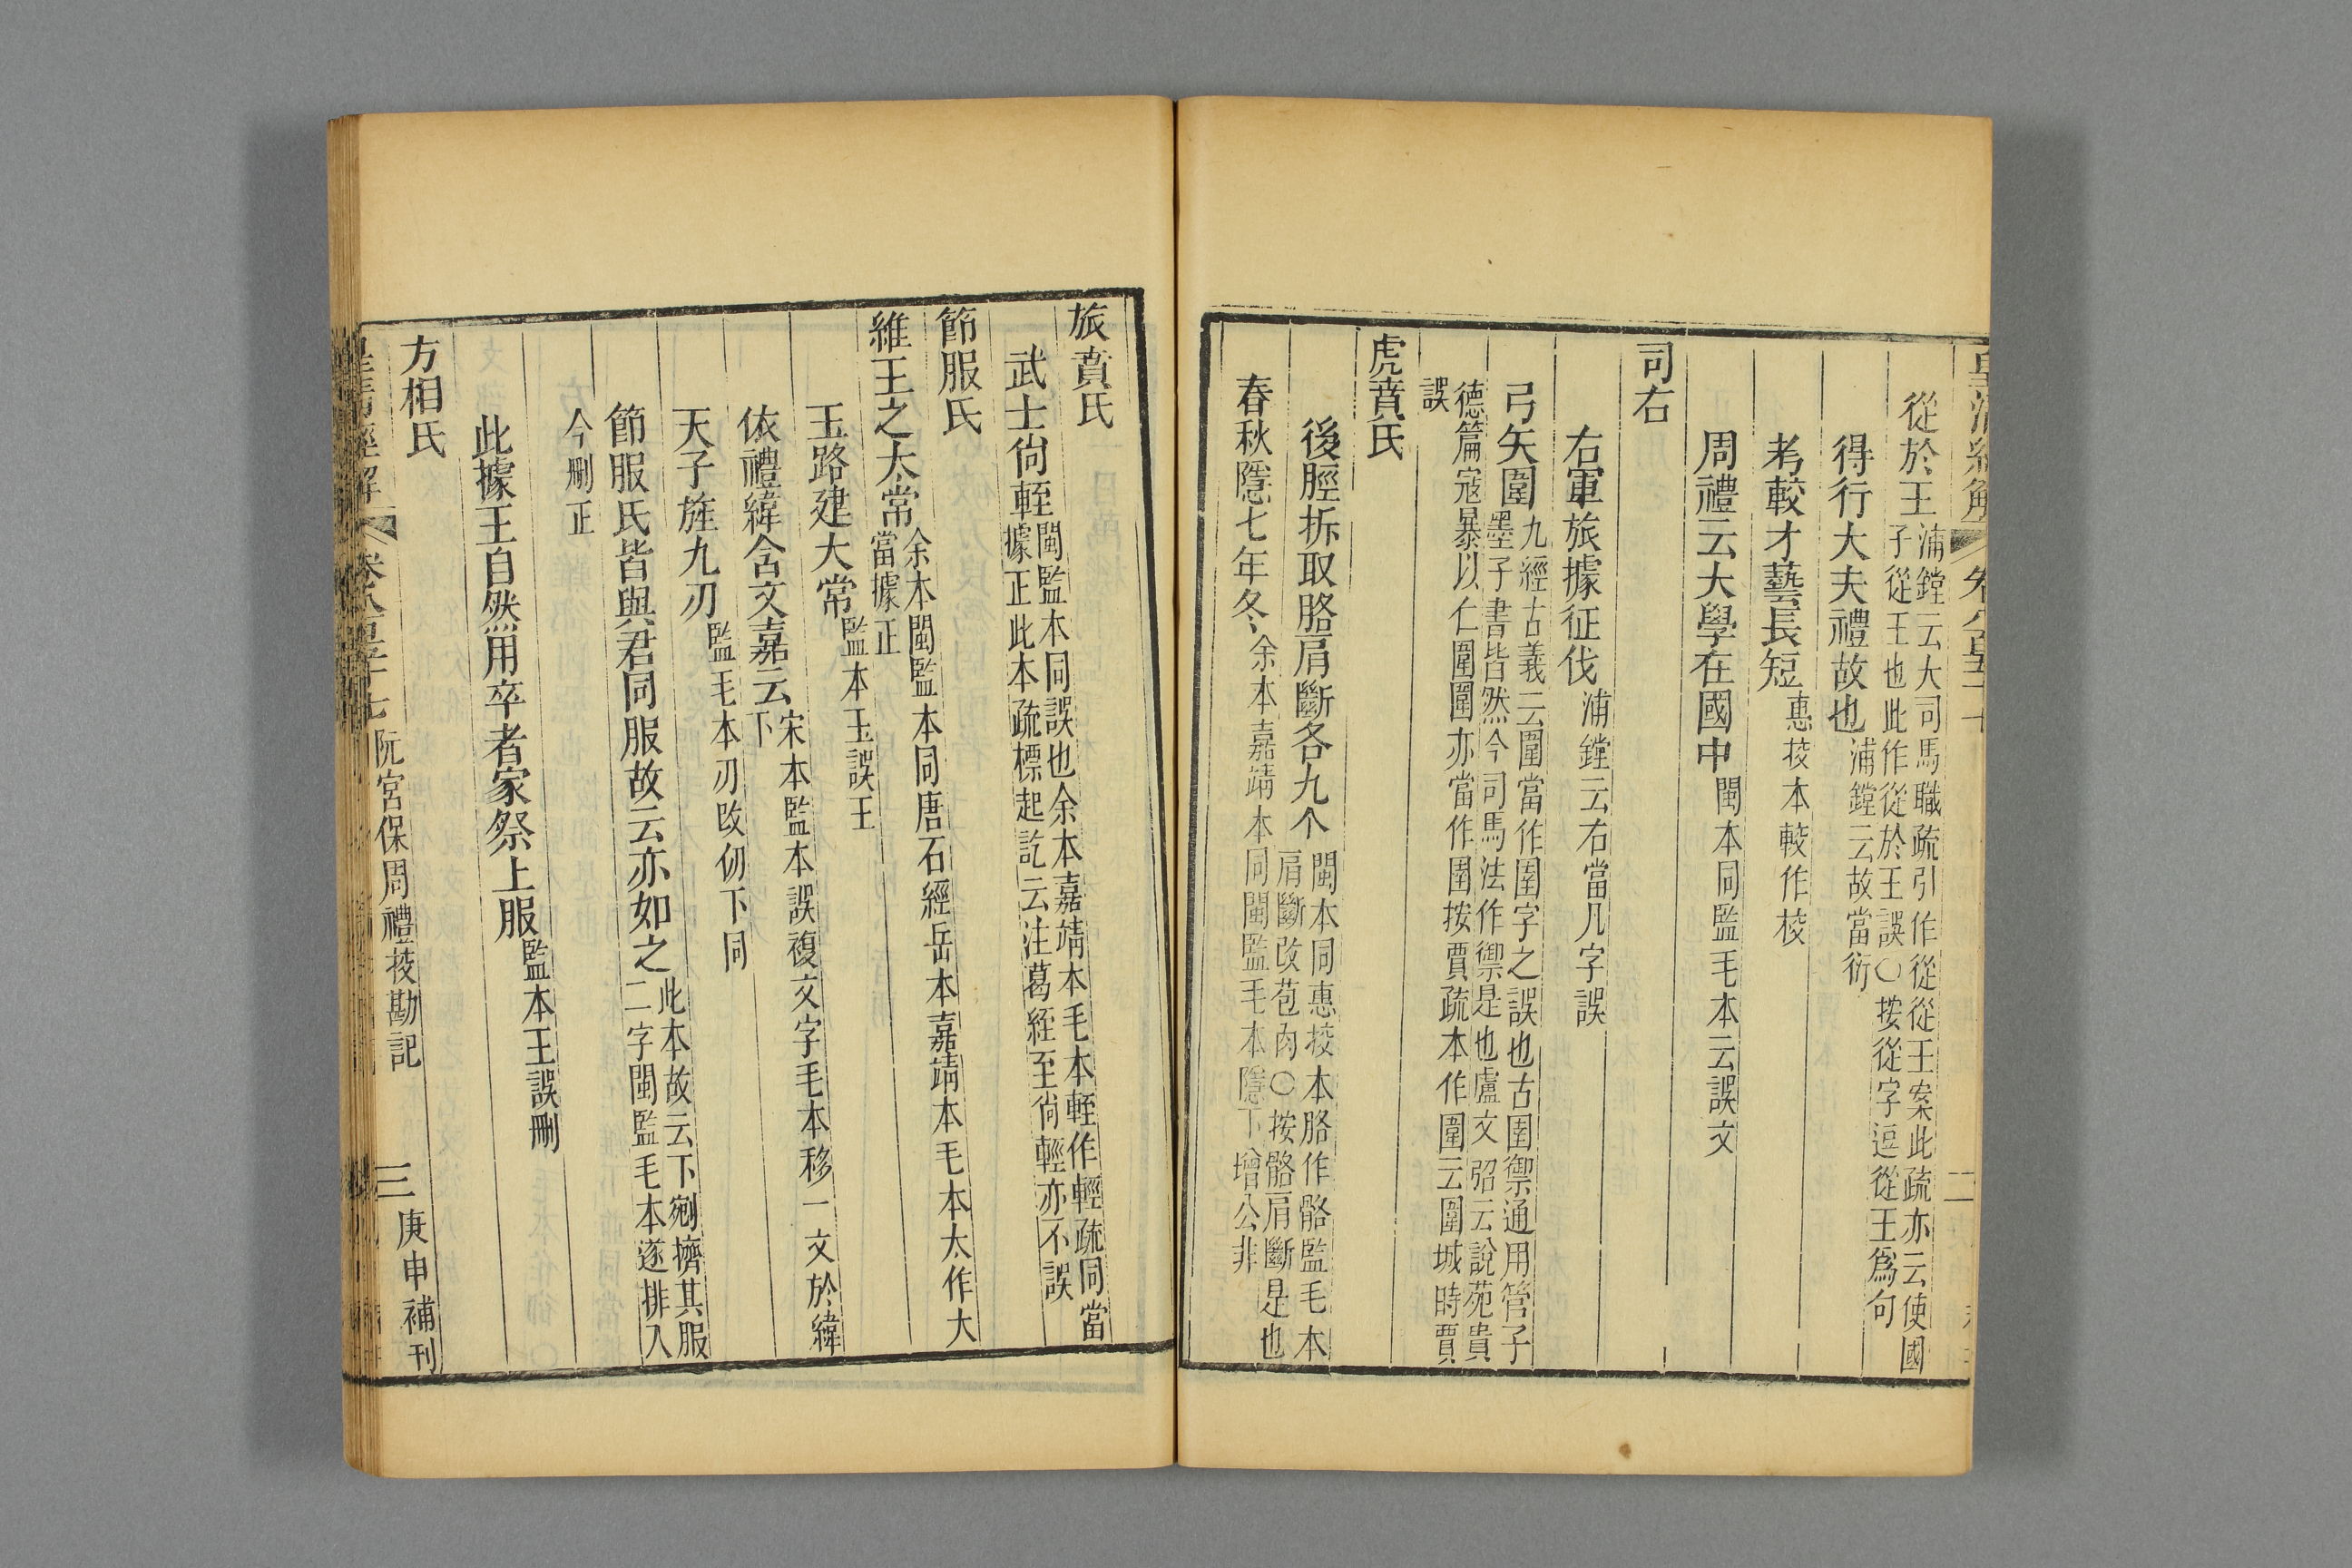 皇清經解 卷八百五十七 二
從於王浦鏜云大司馬職疏引作從從王案此疏亦云使國子從王也此作從於王誤〇按從字逗從王爲句
得行大夫禮故也浦鏜云故當衍
考較才藝長短惠挍本較作校
周禮云大學在國中閩本同監毛本云誤文
司右
右軍旅據征伐浦鏜云右當凡字誤
弓矢圍九經古義云圍當作圉字之誤也古圉禦通用管子墨子書皆然今司馬法作禦是也盧文弨云說苑貴
德篇寇暴以仁圍圍亦當作圉按賈疏本作圍云圍城時賈誤
虎賁氏
後脛拆取胳肩斷各九个閩本同惠挍本胳作骼監毛本肩斷改苞肉〇按骼肩斷是也
春秋隱七年冬余本嘉靖本同閩監毛本隱下增公非
旅賁氏
武士尙輊閩監本同誤也余本嘉靖本毛本輊作輕疏同當據正此本疏標起訖云注葛絰至尙輕亦不誤
節服氏
維王之太常余本閩監本同唐石經岳本嘉靖本毛本太作大當據正
玉路建大常監本玉誤王
依禮緯含文嘉云宋本監本誤複文字毛本移一文於緯下
天子旌九刃監毛本刃改仞下同
節服氏皆與君同服故云亦如之此本故云下剜擠其服二字閩監毛本遂排入
今刪正
此據王自然用卒者家祭上服監本王誤刪
方相氏
皇清經解 卷八百五十七 阮宮保周禮挍勘記 三 庚申補刊